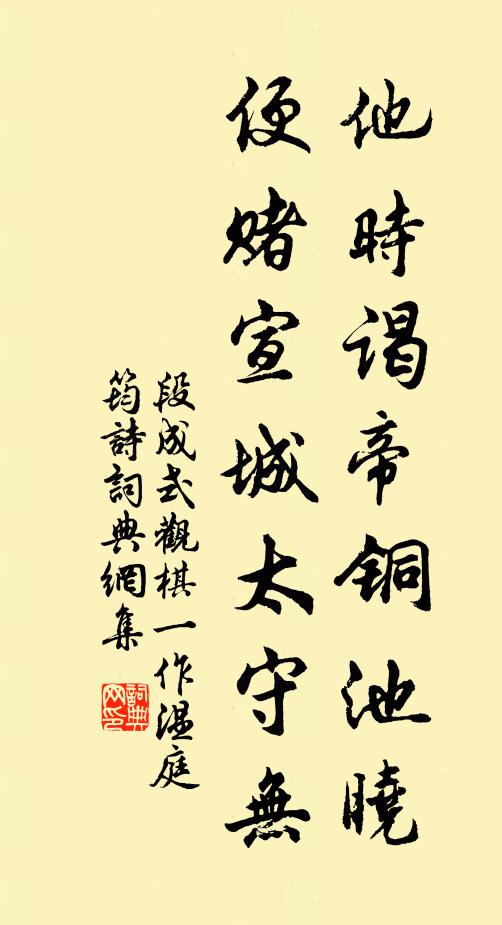 他時謁帝銅池曉
便賭宣城太守無
段成式觀棋一作温庭
筠詩詞典網集
詞典
网印